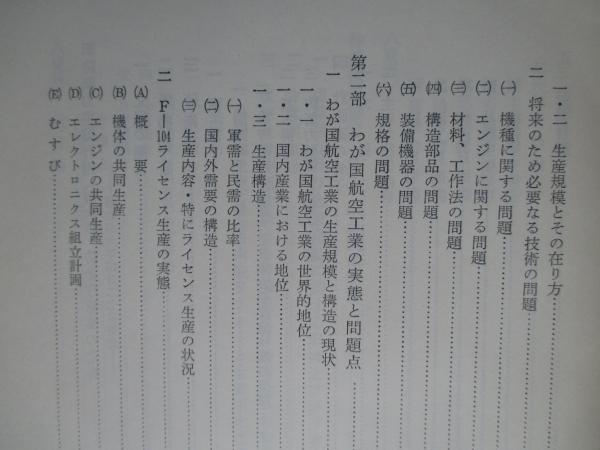 一・二 生産規模とその在り方
二 将来のため必要なる技術の問題
㈠ 機種に関する問題
㈡ エンジンに関する問題
㈢ 材料、工作法の問題
㈣ 構造部品の問題
㈤ 装備機器の問題
㈥ 規格の問題
第二部 わが国航空工業の実態と問題点
一 わが国航空工業の生産規模と構造の現状
一・一 わが国航空工業の世界的地位
一・二 国内産業における地位
一・三 生産構造
㈠ 軍需と民需の比率
㈡ 国内外需要の構造
㈢ 生産内容・特にライセンス生産の状況
二 F—104ライセンス生産の実態
(A) 概要
(B) 機体の共同生産
(C) エンジンの共同生産
(D) エレクトロニクス組立計画
(E) むすび